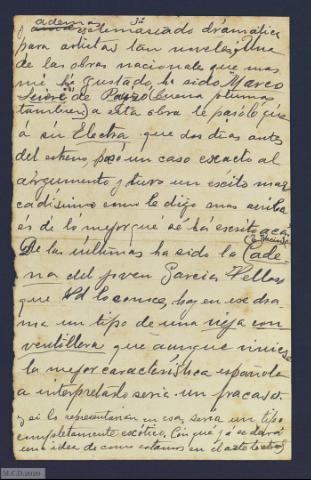 ademas
demasiado dramática
para artistas tan noveles, Una
de las obras nacionales que mas
me ha gustado ha sido Marco
Severi de Payró (buena pluma
tambien) a esta obra le pasó lo que
a su Electra que dos dias antes
del estreno pasó un caso exacto al
argumento y tuvo un exito mar
cadisimo como le digo mas arriba
es de lo mejor que se há escrito acá
De las ultimas ha sido la Cade
na del joven Garcia Velloso
que Vd lo conoce, hay en ese dra
ma un tipo de una vieja con
ventillera que aunque viniese
la mejor caracteristica española
a interpretarlo seria un fracaso.
y si lo representaran en esa, seria un tipo
completamente exótico. Con qué ya se dará
una idea de como estamos en el arte teatral
M.C.D.2020